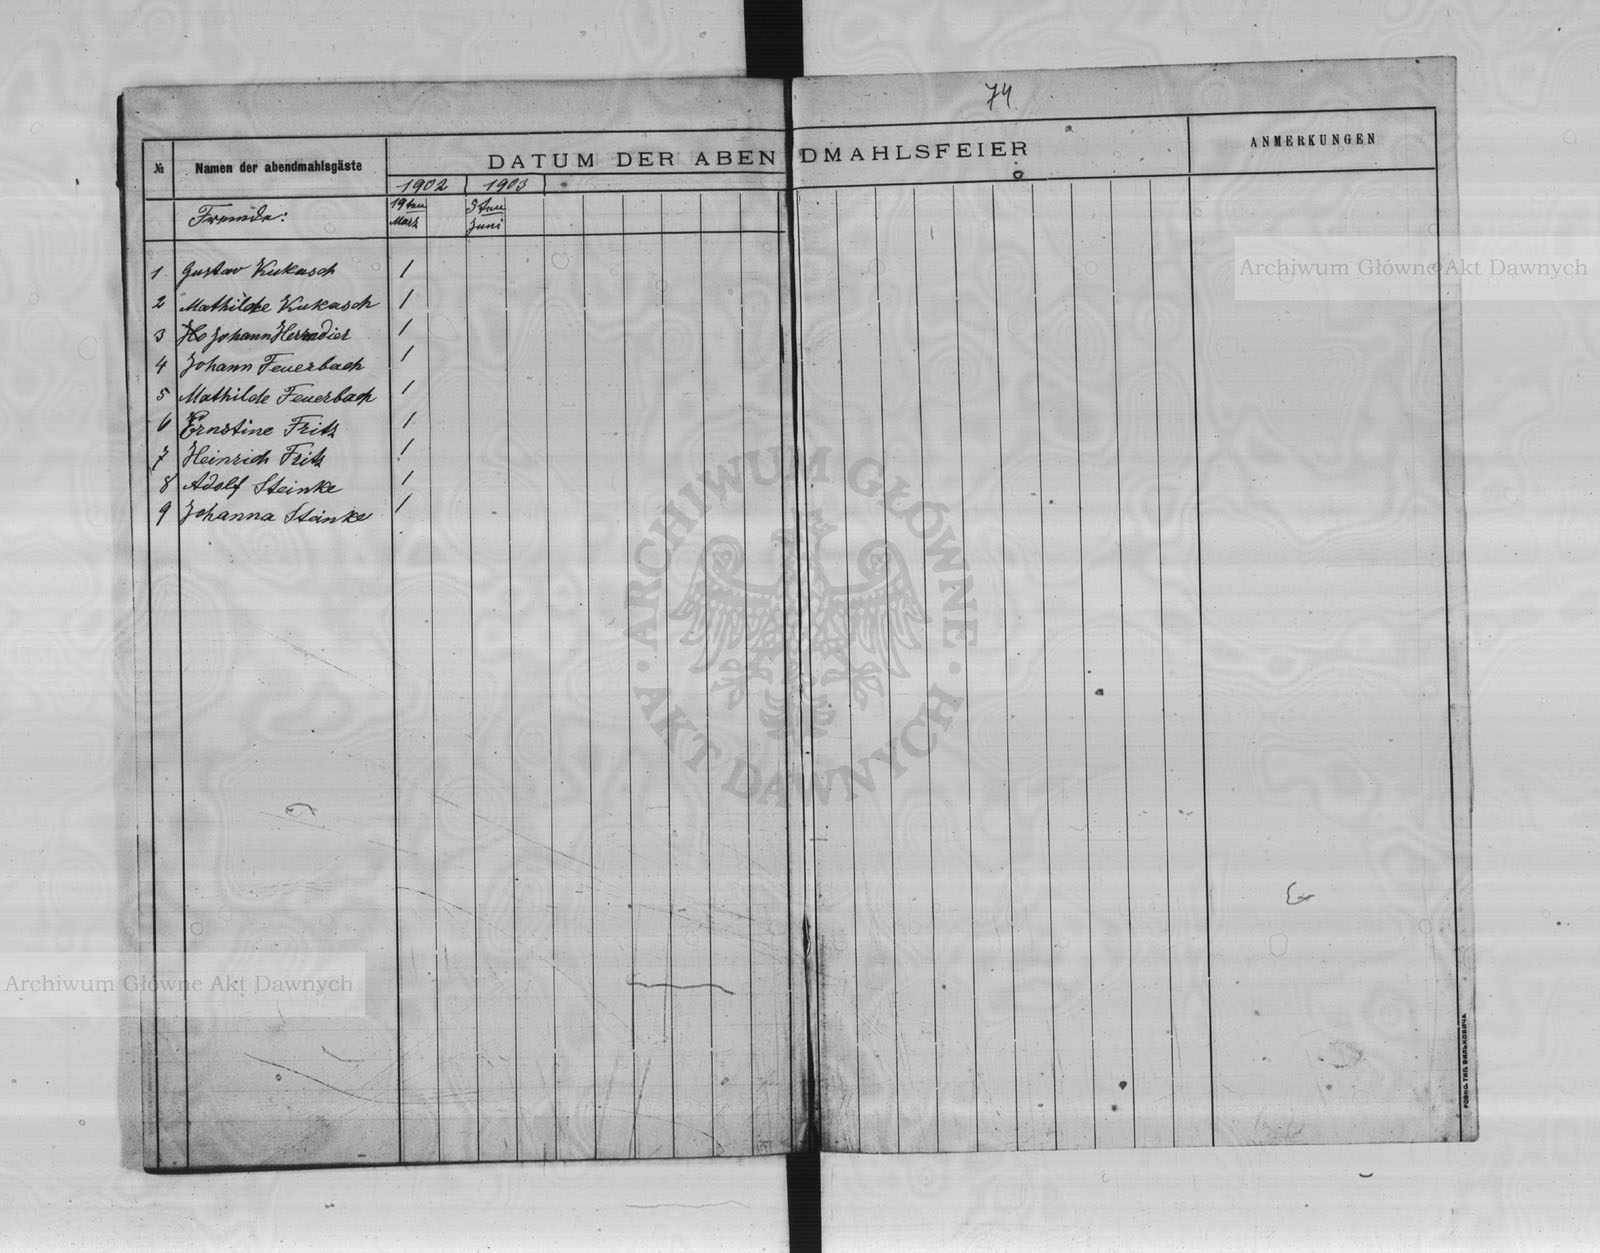 74
№ Namen der abendmahlsgäste DATUM DER ABENDMAHLSFEIER ANMERKUNGEN
1902 1903
Fremde: 19ten März 5ten Juni
1 Gustav Kukasch 1
2 Mathilde Kukasch 1
3 Johann 1
4 Johann Feuerbach 1
5 Mathilde Feuerbach 1
6 Ernstine Fritz 1
7 Heinrich Fritz 1
8 Adolf Steinke 1
9 Johanna Steinke 1
Archiwum Główne Akt Dawnych
ARCHIWUM GŁÓWNE
AKT DAWNYCH
Archiwum Główne Akt Dawnych
РОВНО, ТИП. ВИЛЬКОВИЧА